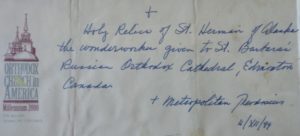 +
Holy Relics of St. Herman of Alaska
the wonderworker given to St. Barbara's
Russian Orthodox Cathedral, Edmonton
Canada.
+ Metropolitan Theodosius
4/XII/99
ORTHODOX
CHURCH IN
AMERICA